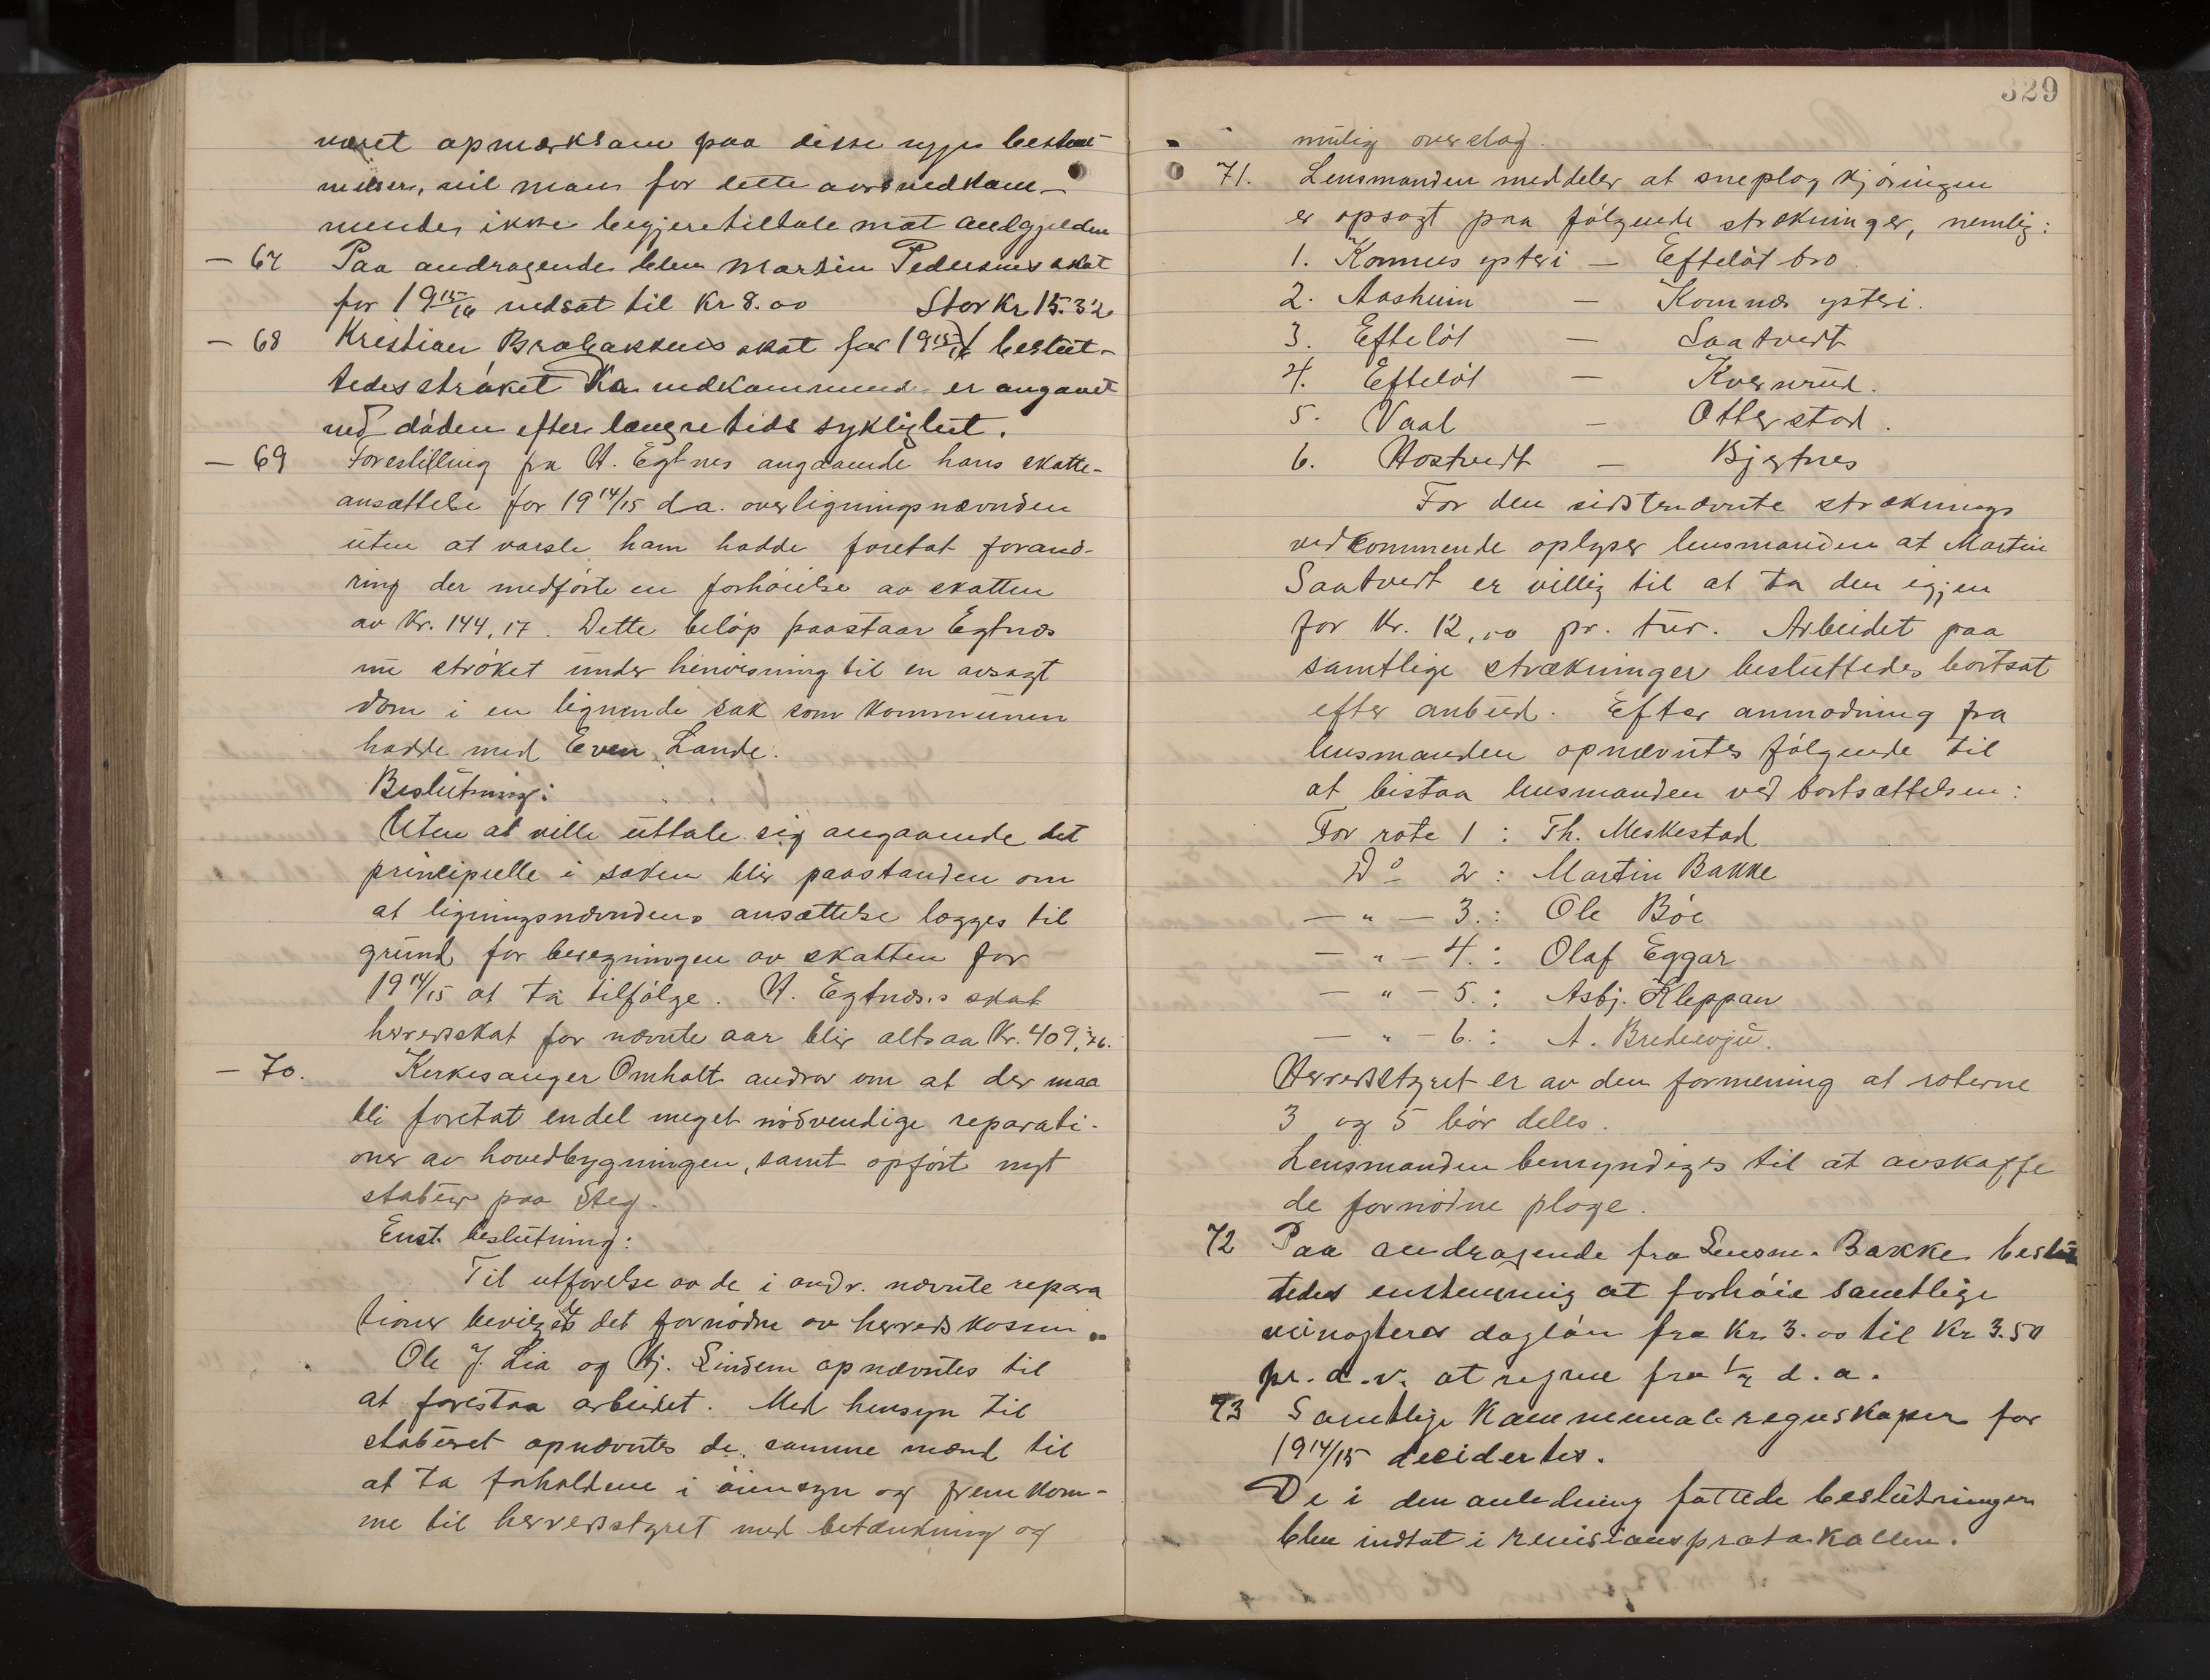 været opmerksam paa disse nye bestem-
melser, vil man for dette aars vedkom-
mende ikke begjere tiltale mot
— 67 Paa andragende blev Martin Pedersens skat
for 19 15/16 nedsat til Kr 8.00 Stor Kr 15.32
— 68 Kristian Brobakkens skat for 19 15/16 beslut-
tedes strøket da vedkommende er avgaaet
ved døden efter længre tids sykelighet.
— 69 Forestilling fra H. Egtnes angaaende hans skatte-
ansættelse for 19 14/15 da overligningsnævnden
uten at varsle ham hadde foretat forand-
ring der medførte en forhøielse av skatten
av Kr. 144,17. Dette beløp paastaar Egtnæs
nu strøket under henvisning til en avsagt
dom i en lignende sak som kommunen
hadde med Even Lande.
Beslutning:
Uten at ville uttale sig angaaende det
principielle i saken blir paastanden om
at ligningsnævndens ansættelse lægges til
grund for beregningen av skatten for
19 14/15 at ta tilfølge. H. Egtnæs's skat
herredsskat for nævnte aar blir altsaa Kr. 409,76.
— 70. Kirkesanger Omholt andrar om at der maa
bli foretat endel meget nødvendige reparati-
oner av hovedbygningen, samt opført nyt
stabur paa Steg.
Enst. beslutning:
Til utførelse av de i andr. nævnte repara
tioner bevilget det fornødne av herredskassen.
Ole J. Lia og Hj. Lindem opnævntes til
at forestaa arbeidet. Med hensyn til
staburet opnævntes de samme mænd til
at ta forholdene i øiensyn og fremkom-
me til herredsstyret med betænkning og
329
mulig overslag.
71. Lensmanden meddeler at sneplogkjøringen
er opsagt paa følgende strekninger, nemlig:
1. Komnes ysteri — Efteløt bro
2. Aasheim — Komnæs ysteri.
3. Efteløt — Saatvedt
4. Efteløt — Kvernrud.
5. Vaal — Otterstad.
6. Hostvedt — Bjertnes
For den sidstnævnte stræknings
vedkommende oplyser lensmanden at Martin
Saatvedt er villig til at ta den igjen
for Kr. 12,00 pr. tur. Arbeidet paa
samtlige strækninger besluttedes bortsat
efter anbud. Efter anmodning fra
lensmanden opnævntes følgende til
at bistaa lensmanden ved bortsættelsen:
For rote 1 : Th. Meskestad
Do 2 : Martin Bakke
— " — 3. : Ole Bøe
— " — 4. : Olaf Eggar
— " — 5. : Asbj. Kleppan
— " — 6. : A. Bredevju.
Herredsstyret er av den formening at roterne
3 og 5 bør deles.
Lensmanden bemyndiges til at avskaffe
de fornødne ploge.
72 Paa andragende fra Lensm. Bakke beslut
tedes enstemmig at forhøie samtlige
veivogteres dagløn fra Kr. 3.00 til Kr 3.50
pr. d. v. at regne fra d. a.
73 Samtlige kommunale regnskaper for
19 14/15 decidertes.
De i den anledning fattede beslutninger
blev indtat i revisionsprotokollen.